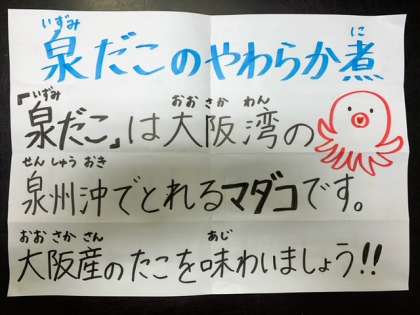 いずみ に
泉だこのやわらか煮
いずみ おおさか わん
『泉だこ』は大阪湾の
せんしゅう おき
泉州沖でとれるマダコです。
おおさかさん あじ
大阪産のたこを味わいましょう!!